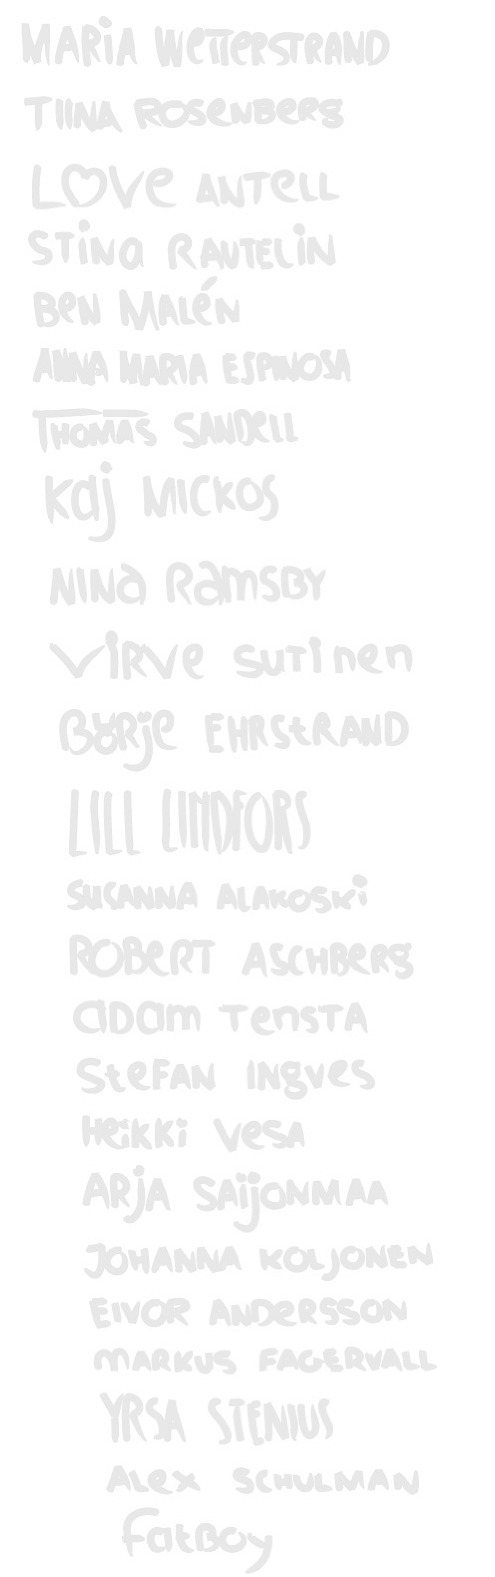 MARiA WeTTeRSTRAND
TIINA ROSeNBeRg
LOVe ANTeLL
STiNa RAUTELiN
BeN MALéN
ANNA MARIA ESPINOSA
THOMAS SANDeLL
Kaj MICKOS
NINa RamSBY
ViRVe SUTiNeN
BÖRje EHRStRAND
LILL LINDFORS
SUSANNA ALAKOSKi
ROBeRT ASCHBeRg
aDam TeNSTA
SteFAN INgVeS
Heikki VeSA
ARjA SAijONMAA
JOHANNA KOLJONEN
EIVOR ANDeRSSON
mARKUS FAGERVALL
YRSA STENIUS
ALex SCHULMAN
FatBoy